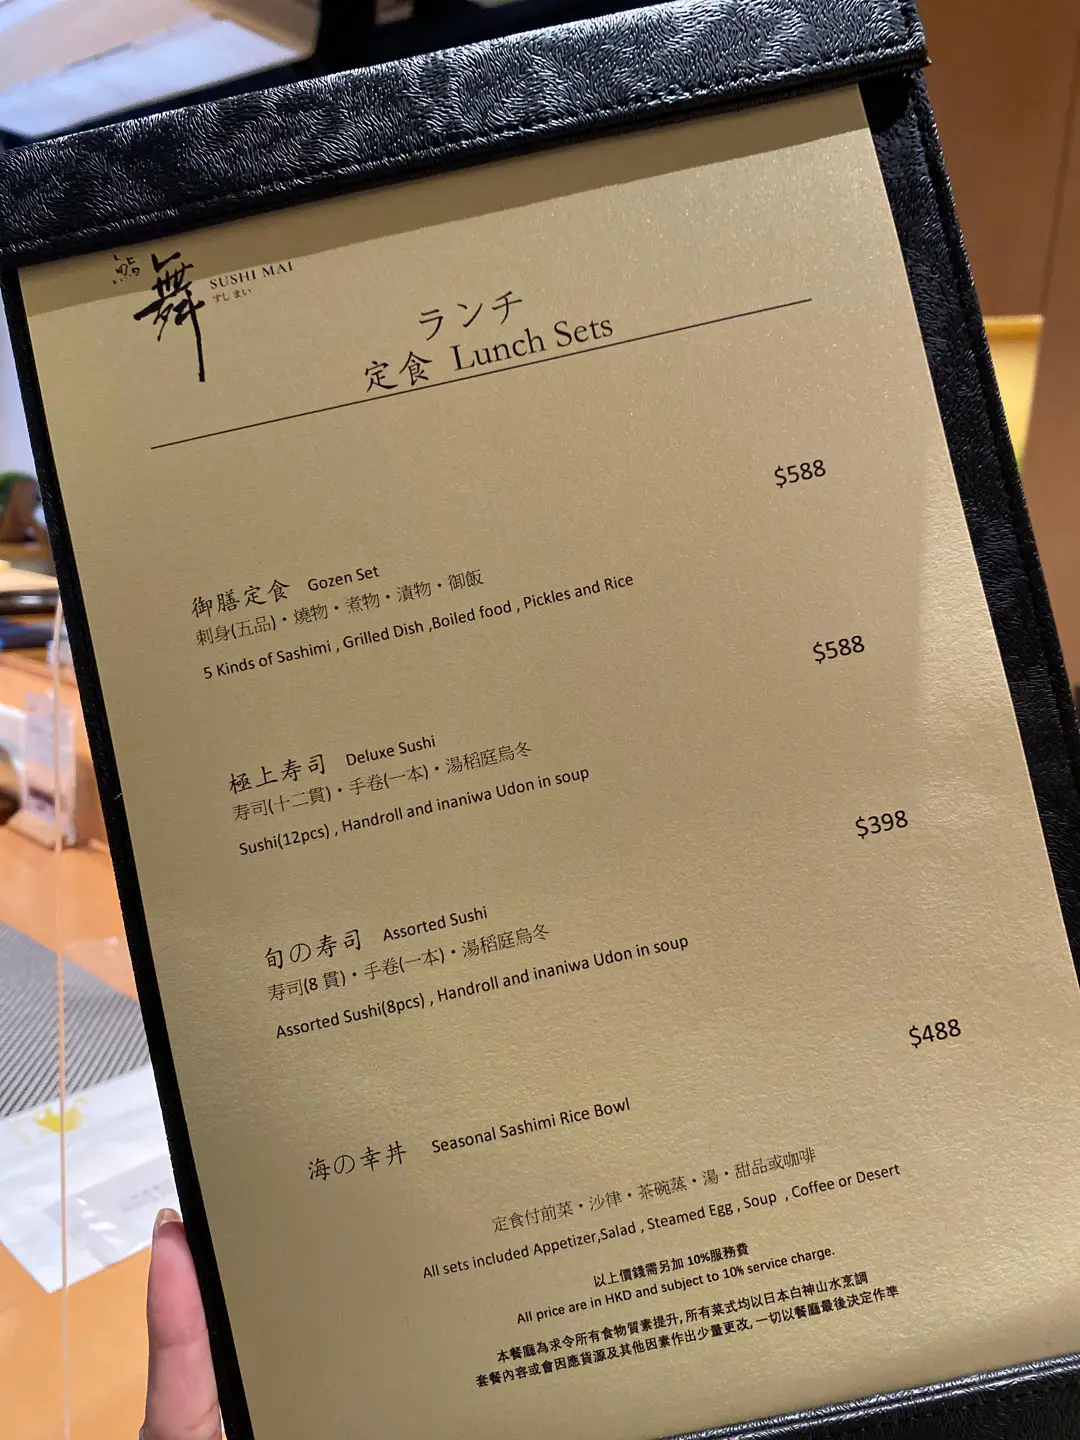 鮨 舞 SUSHI MAI
すし まい
ランチ
定食 Lunch Sets
$588
御膳定食 Gozen Set
刺身(五品)・燒物・煮物・漬物・御飯
5 Kinds of Sashimi , Grilled Dish ,Boiled food , Pickles and Rice
$588
極上寿司 Deluxe Sushi
寿司(十二貫)・手卷(一本)・湯稻庭烏冬
Sushi(12pcs) , Handroll and inaniwa Udon in soup
$398
旬の寿司 Assorted Sushi
寿司(8 貫)・手卷(一本)・湯稻庭烏冬
Assorted Sushi(8pcs) , Handroll and inaniwa Udon in soup
$488
海の幸丼 Seasonal Sashimi Rice Bowl
定食付前菜・沙律・茶碗蒸・湯・甜品或咖啡
All sets included Appetizer,Salad , Steamed Egg , Soup , Coffee or Desert
以上價錢需另加 10%服務費
All price are in HKD and subject to 10% service charge.
本餐廳為求令所有食物質素提升, 所有菜式均以日本白神山水烹調
套餐內容或會因應貨源及其他因素作出少量更改, 一切以餐廳最後決定作準